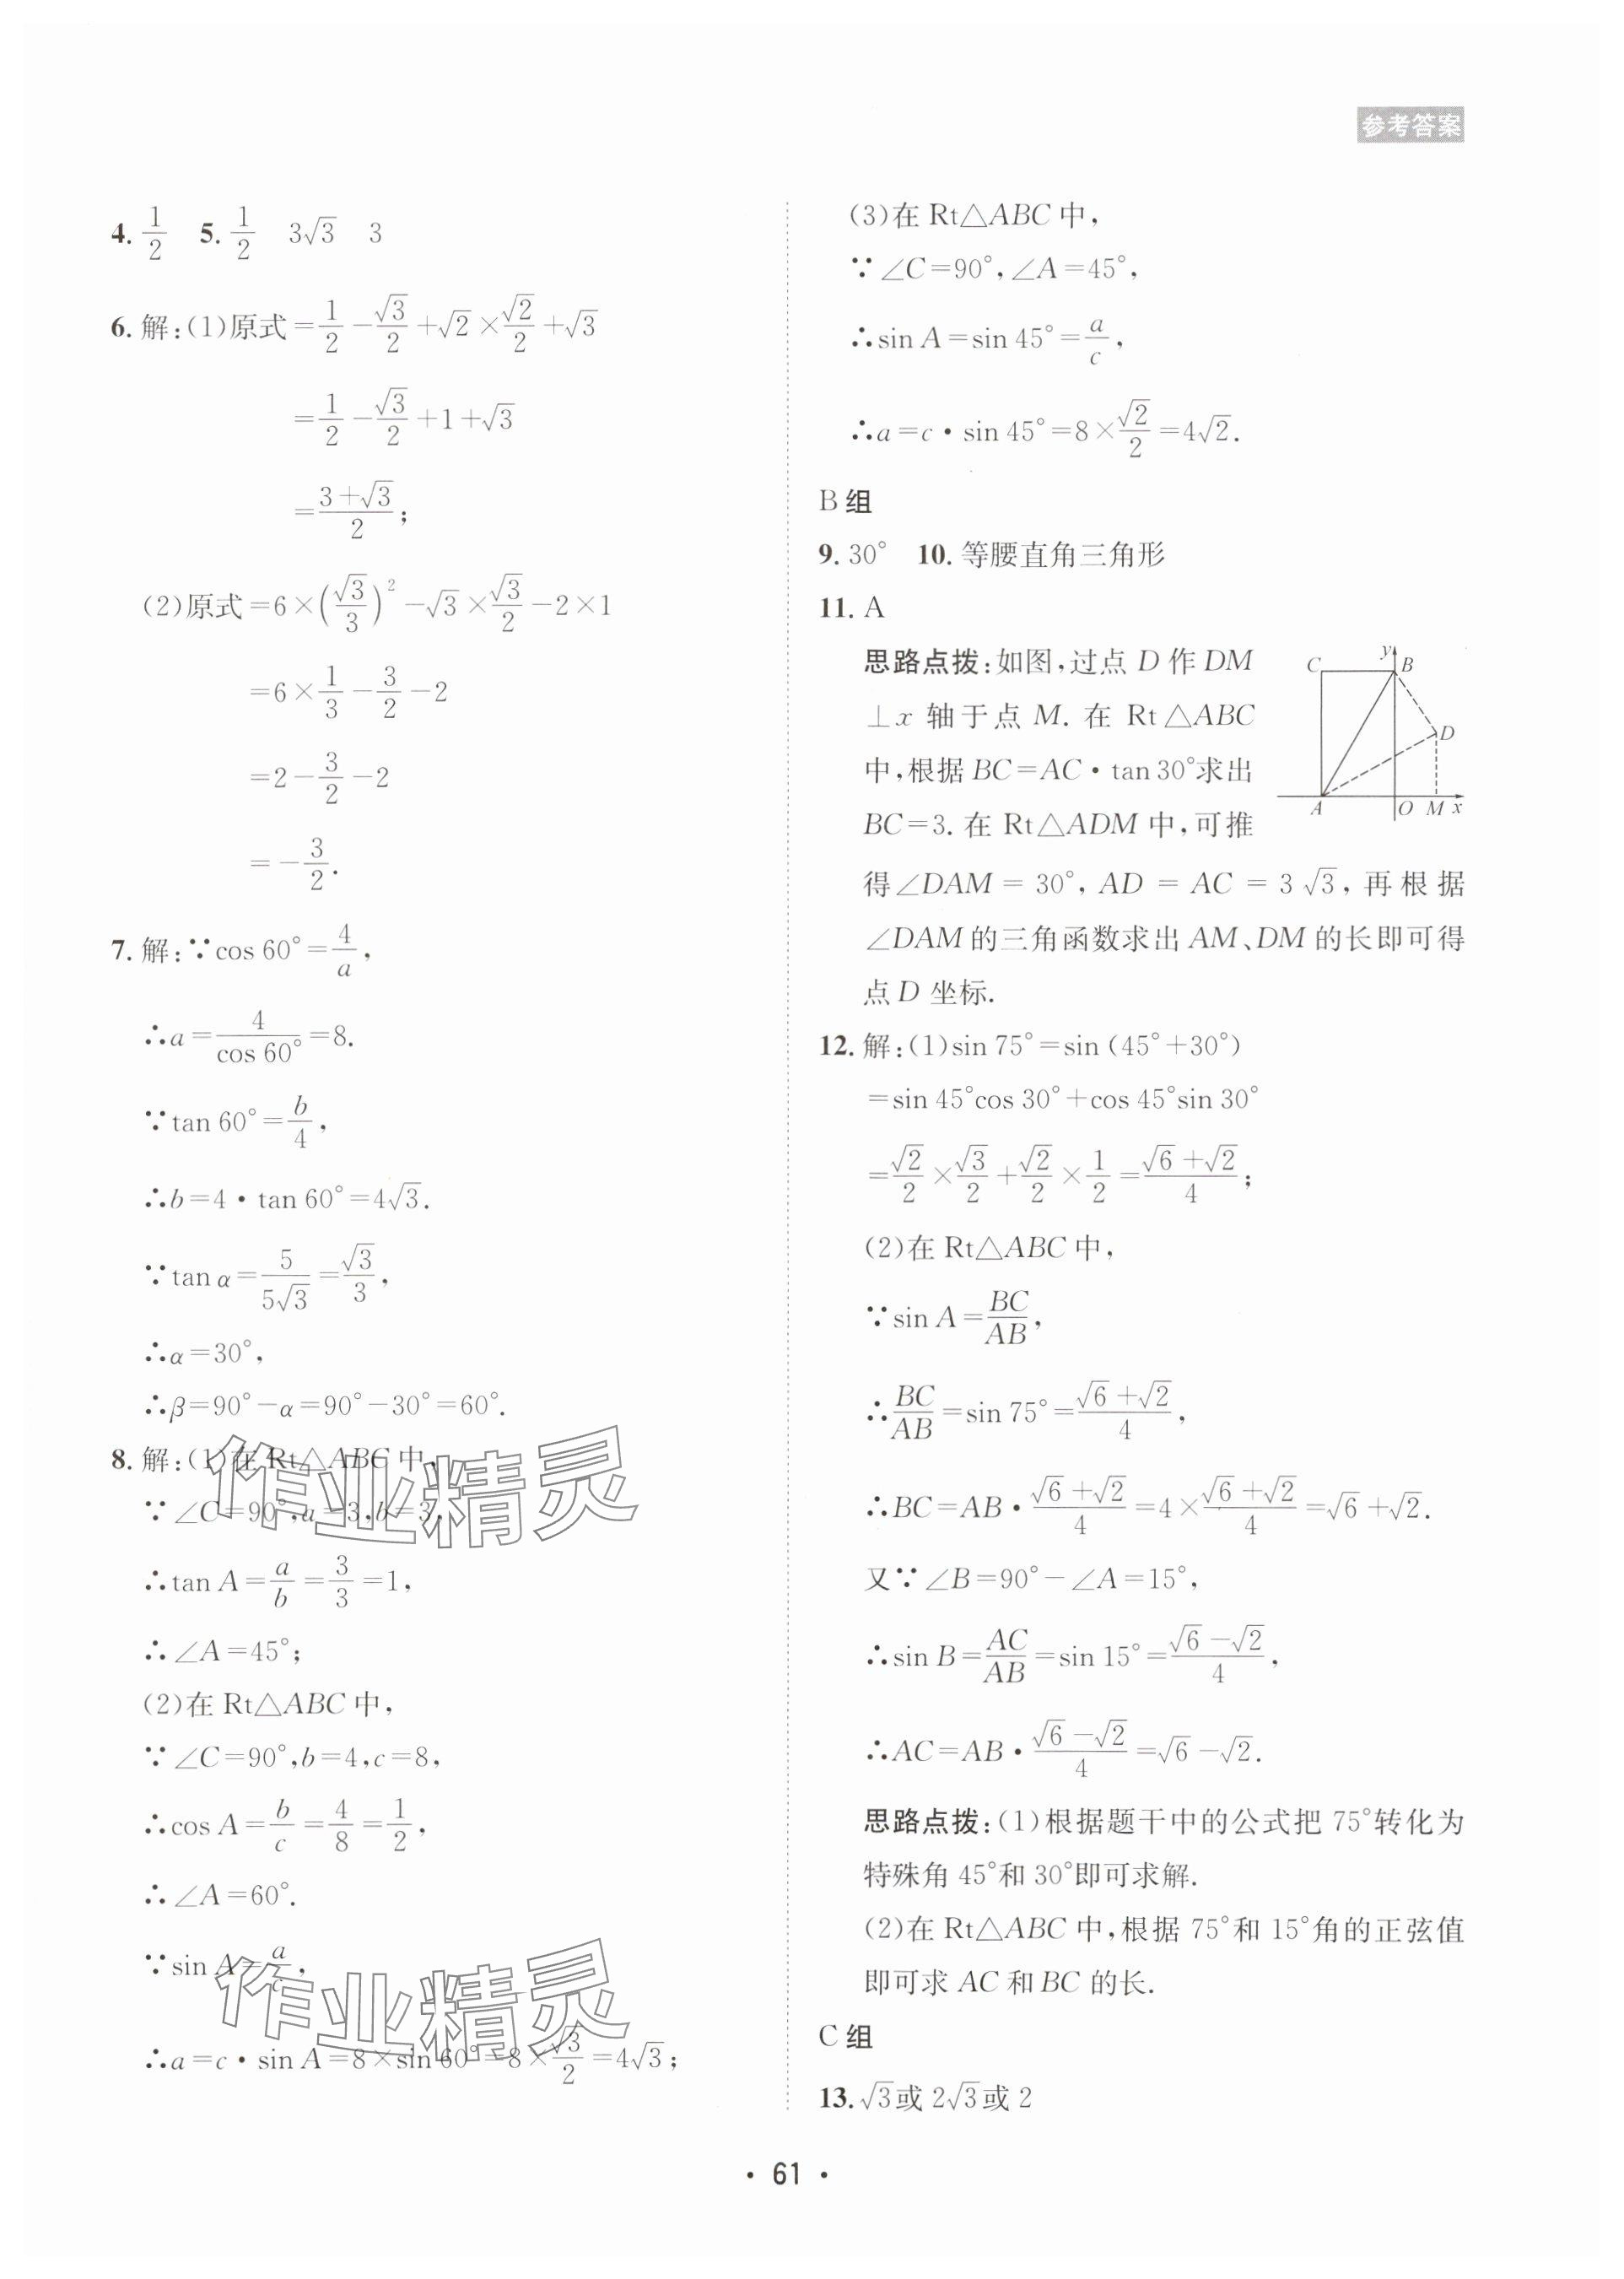 参考答案
4. 1/2  5. 1/2  3√3  3
6. 解:(1)原式=1/2-√3/2+√2×√2/2+√3
=1/2-√3/2+1+√3
=(3+√3)/2;
(2)原式=6×(√3/3)²-√3×√3/2-2×1
=6×1/3-3/2-2
=2-3/2-2
=-3/2.
7. 解:∵cos 60°=4/a,
∴a=4/cos 60°=8.
∵tan 60°=b/4,
∴b=4·tan 60°=4√3.
∵tan α=5/5√3=√3/3,
∴α=30°,
∴β=90°-α=90°-30°=60°.
8. 解:(1)在 Rt△ABC 中,
∵∠C=90°,a=3,b=3,
∴tan A=a/b=3/3=1,
∴∠A=45°;
(2)在 Rt△ABC 中,
∵∠C=90°,b=4,c=8,
∴cos A=b/c=4/8=1/2,
∴∠A=60°.
∵sin A=a/c,
∴a=c·sin A=8×sin 60°=8×√3/2=4√3;
作业精灵
作业精灵
(3)在 Rt△ABC 中,
∵∠C=90°,∠A=45°,
∴sin A=sin 45°=a/c,
∴a=c·sin 45°=8×√2/2=4√2.
B 组
9. 30°  10. 等腰直角三角形
11. A
思路点拨:如图,过点 D 作 DM
⊥x 轴于点 M. 在 Rt△ABC
中,根据 BC=AC·tan 30°求出
BC=3. 在 Rt△ADM 中,可推
得∠DAM=30°,AD=AC=3√3,再根据
∠DAM 的三角函数求出 AM、DM 的长即可得
点 D 坐标.
y
C B
D
A O M x
12. 解:(1)sin 75°=sin (45°+30°)
=sin 45°cos 30°+cos 45°sin 30°
=√2/2×√3/2+√2/2×1/2=(√6+√2)/4;
(2)在 Rt△ABC 中,
∵sin A=BC/AB,
∴BC/AB=sin 75°=(√6+√2)/4,
∴BC=AB·(√6+√2)/4=4×(√6+√2)/4=√6+√2.
又∵∠B=90°-∠A=15°,
∴sin B=AC/AB=sin 15°=(√6-√2)/4,
∴AC=AB·(√6-√2)/4=√6-√2.
思路点拨:(1)根据题干中的公式把 75°转化为
特殊角 45°和 30°即可求解.
(2)在 Rt△ABC 中,根据 75°和 15°角的正弦值
即可求 AC 和 BC 的长.
C 组
13. √3或 2√3或 2
· 61 ·